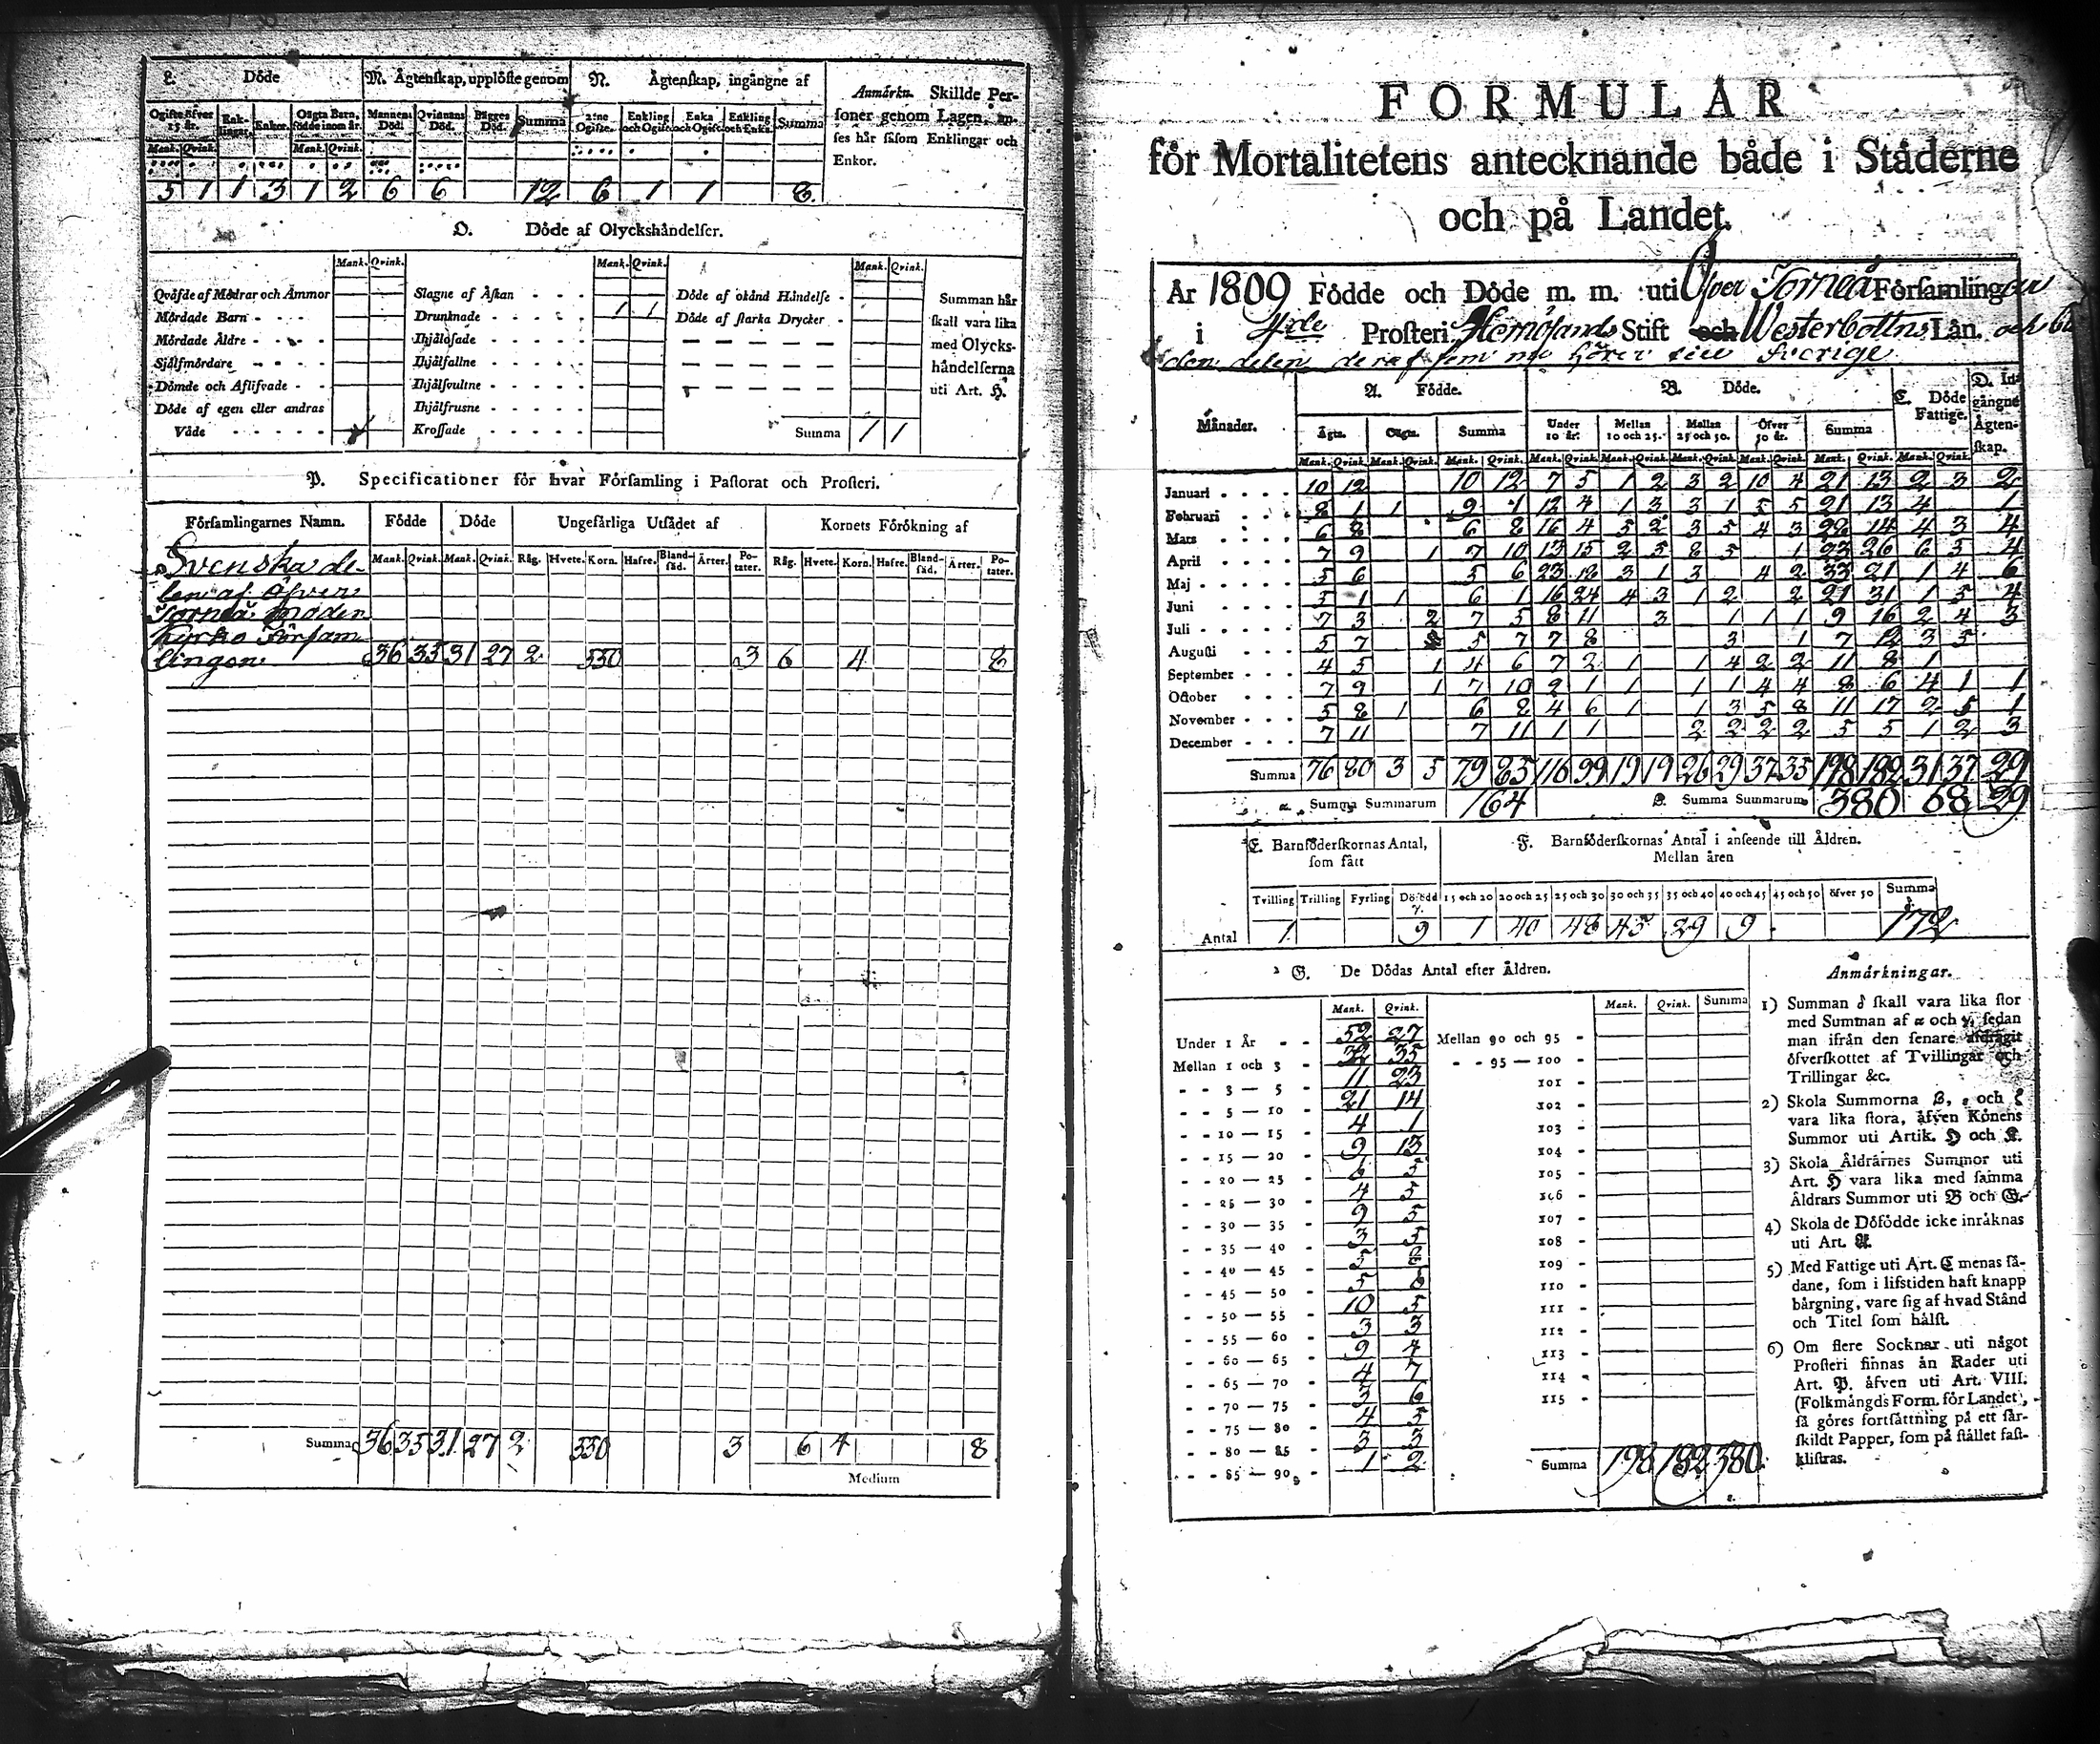 L. Döde
M. Ägtenskap, upplöste genom
N. Ägtenskap, ingångne af
Anmärkn. Skillde Per-
soner genom Lagen, an-
ses här såsom Enklingar och
Enkor.
Ogifte öfver 15 år. Enk-lingar. Enkor. Oägta Barn, födde inom år. Mannens Död. Qvinnans Död. Bägges Död. Summa 2:ne Ogifte. Enkling och Ogift Enka och Ogift Enkling och Enka. Summa
Mank. Qvink. Mank. Qvink.
5 1 1 3 1 2 6 6 12 6 1 1 8
O. Döde af Olyckshändelser.
Mank. Qvink. Mank. Qvink. Mank. Qvink.
Qväfde af Mödrar och Ammor Slagne af Åskan Döde af okänd Händelse Summan här
Mördade Barn Drunknade 1 1 Döde af starka Drycker skall vara lika
Mördade Äldre Ihjälösade med Olycks-
Självmördare Ihjälfallne händelserna
Dömde och Aflifvade Ihjälsvultne uti Art. H.
Döde af egen eller andras Ihjälfrusne
Våde Krossade Summa 1 1
P. Specificationer för hvar Församling i Pastorat och Prosteri.
Församlingarnes Namn. Födde Döde Ungefärliga Utsädet af Kornets Förökning af
Mank. Qvink. Mank. Qvink. Råg. Hvete. Korn. Hafre. Bland-säd. Ärter. Po-tater. Råg. Hvete. Korn. Hafre. Bland-säd. Ärter. Po-tater.
Svenska de-
len af Öfver
Torneå moder
kyrko Försam
lingen 36 35 31 27 2 550 3 6 4 8
Summa 36 35 31 27 2 550 3 6 4 8
Medium
FORMULÄR
för Mortalitetens antecknande både i Städerne
och på Landet.
År 1809 Födde och Döde m. m. uti Öfver Torneå Församlingar
i 4de Prosteri Hernösands Stift och Westerbottns Län.
den delen deraf som nu hörer till Sverige
Månader. A. Födde. B. Döde. C. Döde Fattige. D. In-gångne Ägten-skap.
Ägta. Oägta. Summa Under 10 år. Mellan 10 och 25. Mellan 25 och 50. Öfver 50 år. Summa
Mank. Qvink. Mank. Qvink. Mank. Qvink. Mank. Qvink. Mank. Qvink. Mank. Qvink. Mank. Qvink. Mank. Qvink. Mank. Qvink.
Januari 10 12 10 12 7 5 1 2 3 2 10 4 21 13 2 3 2
Februari 8 1 1 9 1 12 4 1 3 3 1 5 5 21 13 4 1
Mars 6 8 6 8 16 4 5 2 3 5 4 3 28 14 4 3 4
April 7 9 1 7 10 13 15 2 5 8 5 1 23 26 6 5 4
Maj 5 6 5 6 23 18 3 1 3 4 2 33 21 1 4 6
Juni 5 1 1 6 1 16 24 4 3 1 2 2 21 31 1 5 4
Juli 7 3 2 7 5 8 11 3 1 1 1 9 16 2 4 3
Augusti 5 7 5 7 7 8 3 1 7 12 3 5
September 4 5 1 4 6 7 2 1 1 4 2 2 11 8 1
October 7 9 1 7 10 2 1 1 1 1 4 4 8 6 4 1 1
November 5 8 1 6 8 4 6 1 1 3 5 8 11 17 2 5 1
December 7 11 7 11 1 1 2 2 2 2 5 5 1 2 3
Summa 76 80 3 5 79 85 116 99 19 19 26 29 37 35 198 182 31 37 29
α. Summa Summarum 164 β. Summa Summarum 380 68 29
E. Barnföderskornas Antal, som fått
F. Barnföderskornas Antal i anseende till Åldren.
Mellan åren
Tvilling Trilling Fyrling Dödfödd 15 och 20 20 och 25 25 och 30 30 och 35 35 och 40 40 och 45 45 och 50 öfver 50 Summa
Antal 1 9 1 40 48 45 29 9 172
G. De Dödas Antal efter Åldren.
Mank. Qvink. Mank. Qvink. Summa
Under 1 År 52 27 Mellan 90 och 95
Mellan 1 och 3 32 35 95 — 100
3 — 5 11 23 101
5 — 10 21 14 102
10 — 15 4 1 103
15 — 20 9 13 104
20 — 25 6 5 105
25 — 30 4 5 106
30 — 35 9 5 107
35 — 40 3 5 108
40 — 45 5 109
45 — 50 5 110
50 — 55 10 5 111
55 — 60 3 3 112
60 — 65 9 4 113
65 — 70 4 7 114
70 — 75 3 6 115
75 — 80 4 5
80 — 85 3 3
85 — 90 1 2 Summa 198 182 380
Anmärkningar.
1) Summan δ skall vara lika stor
med Summan af α och γ, sedan
man ifrån den senare afdragit
öfverskottet af Tvillingar och
Trillingar &c.
2) Skola Summorna β, ε och ζ
vara lika stora, äfven Könens
Summor uti Artik. H och K.
3) Skola Åldrarnes Summor uti
Art. H vara lika med samma
Åldrars Summor uti B och G.
4) Skola de Döfödde icke inräknas
uti Art. A.
5) Med Fattige uti Art. C menas så-
dane, som i lifstiden haft knapp
bärgning, vare sig af hvad Stånd
och Titel som hälst.
6) Om flere Socknar uti något
Prosteri finnas än Rader uti
Art. P. äfven uti Art. VIII.
(Folkmängds Form. för Landet),
så göres fortsättning på ett sär-
skildt Papper, som på stället fast-
klistras.